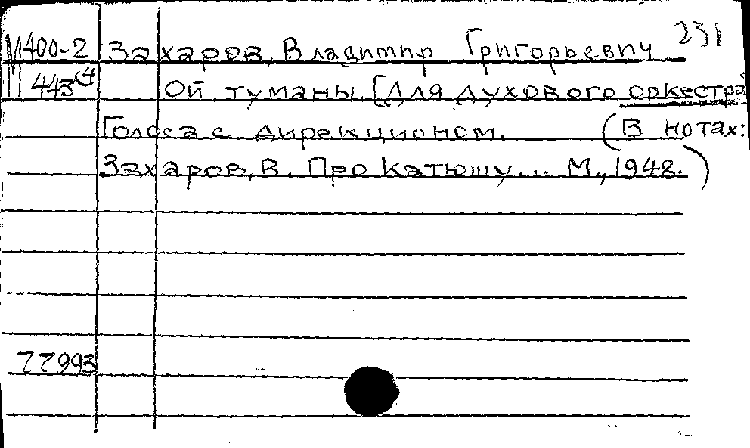 М400-2 Захаров, Владимир Григорьевич 231
443 Ой туманы. [Для духового оркестра
Голоса с дирекционом. (В нотах:
Захаров, В. Про Катюшу... М., 1948.)
77993